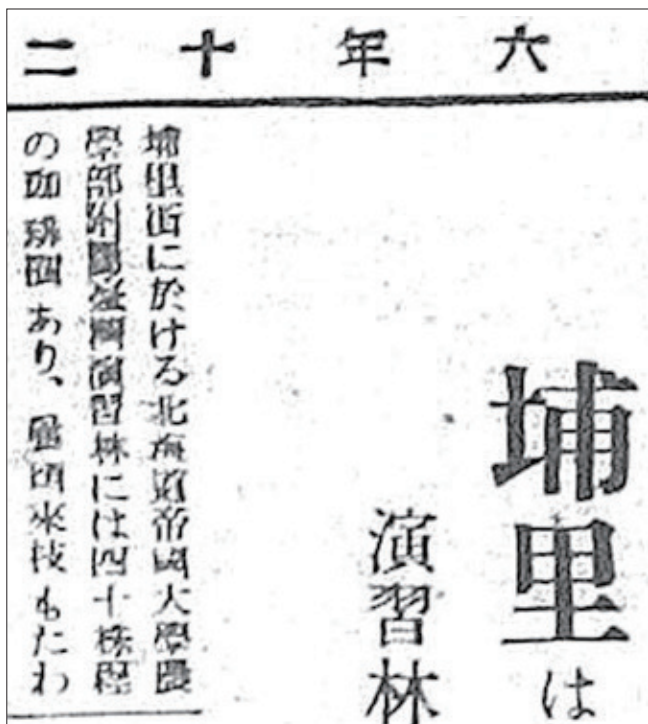 六年十二
埔里は
演習林
埔里街に於ける北海道帝國大學農
學部附屬臺灣演習林には四十株程
の珈琲園あり、頃來枝もたわ